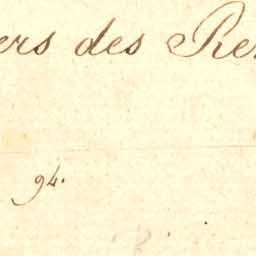 ers des Re
94.